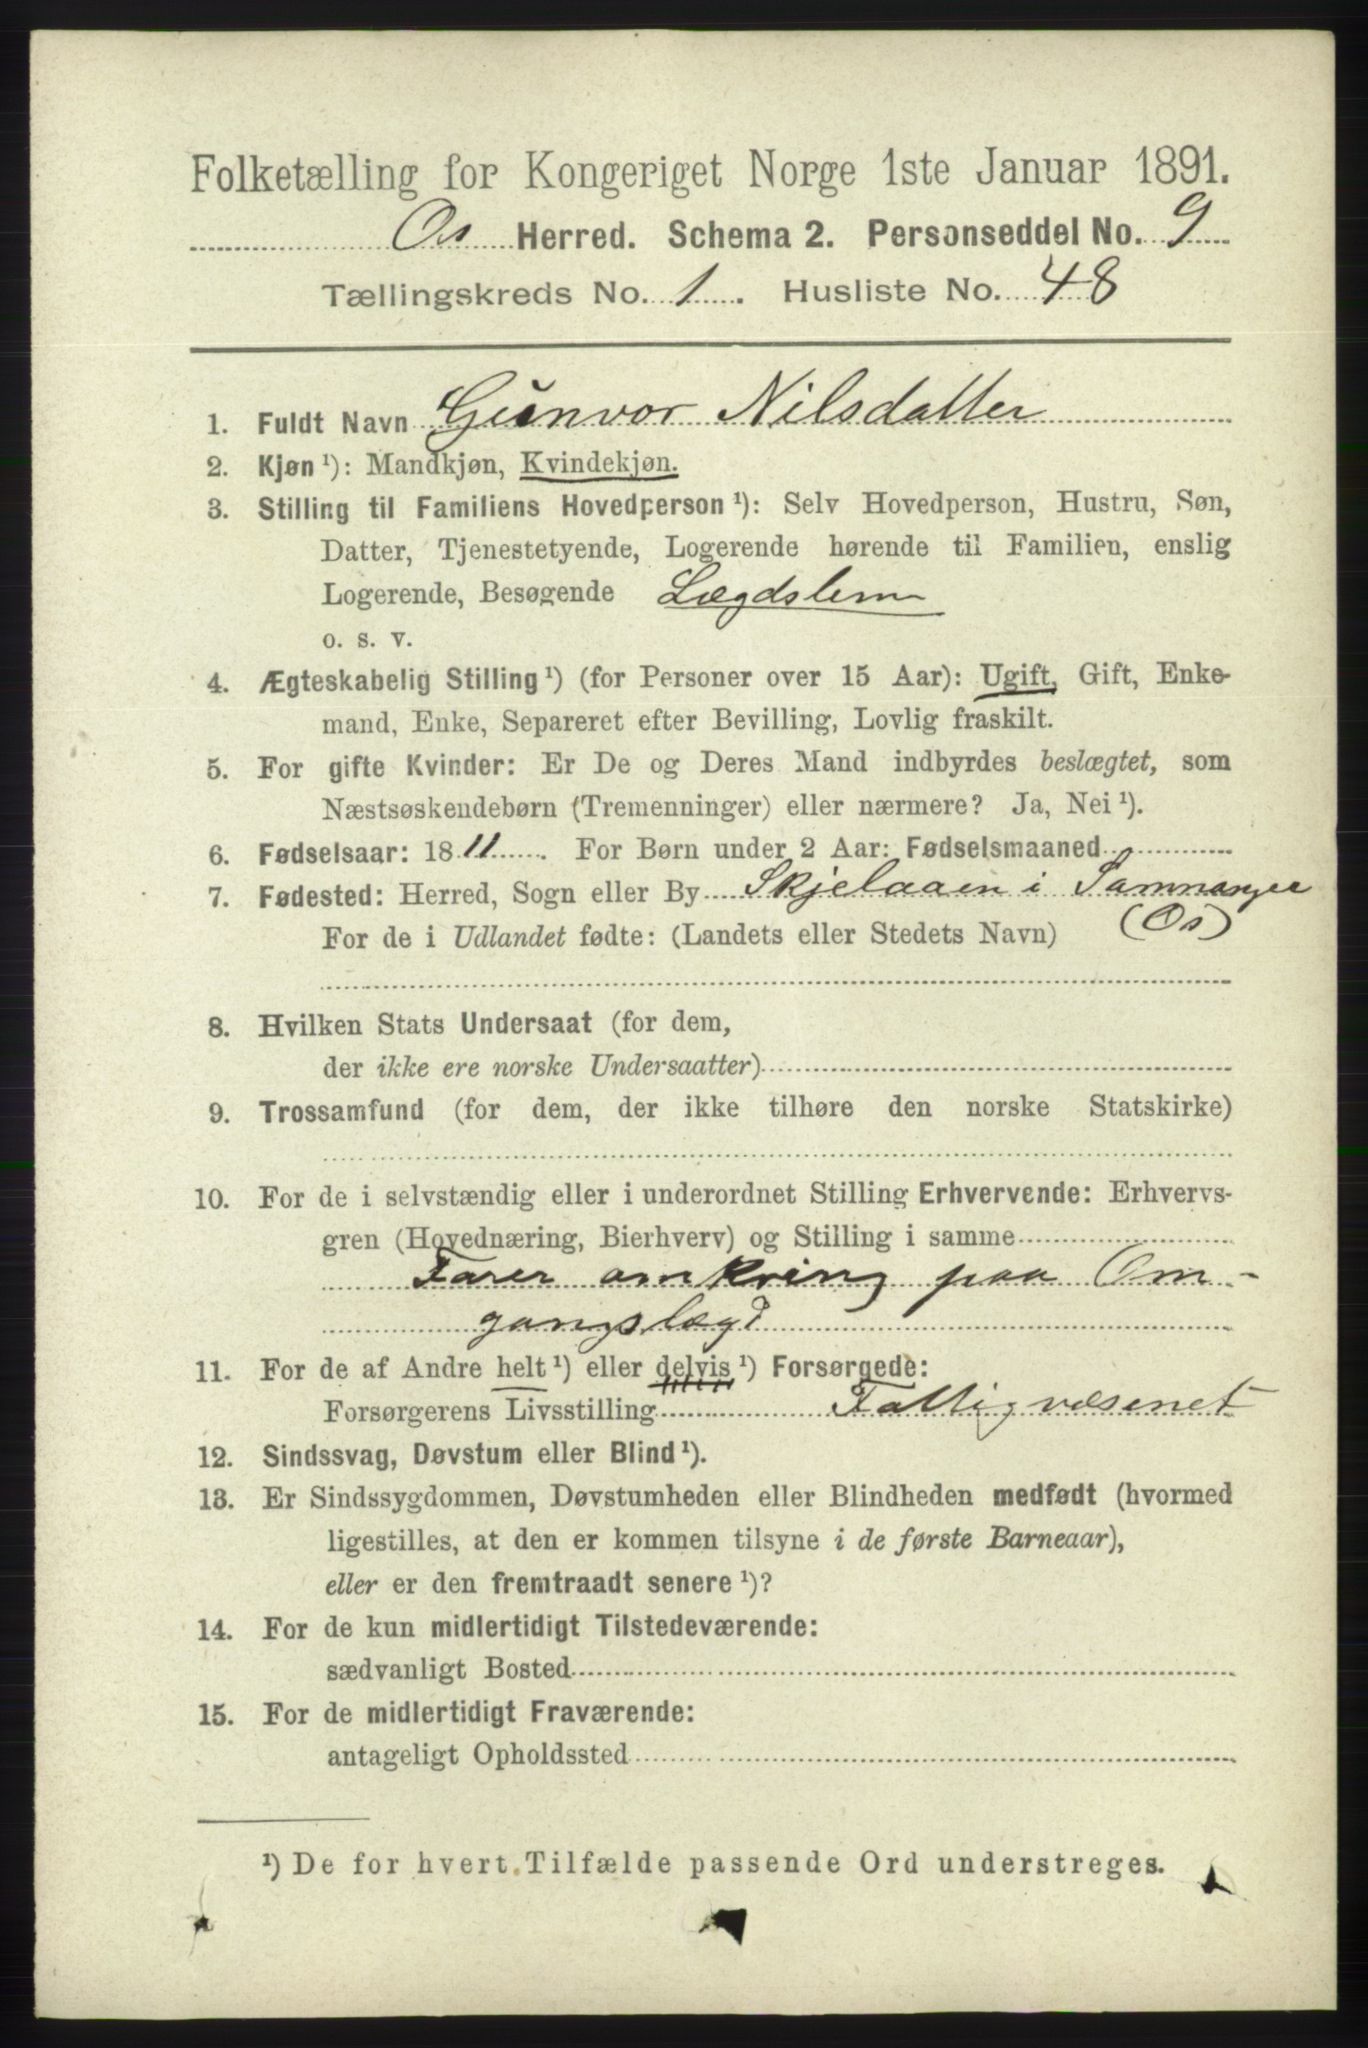 Folketælling for Kongeriget Norge 1ste Januar 1891.
Os Herred. Schema 2. Personseddel No. 9
Tællingskreds No. 1. Husliste No. 48
1. Fuldt Navn Gunvor Nilsdatter
2. Kjøn ¹): Mandkjøn, Kvindekjøn.
3. Stilling til Familiens Hovedperson ¹): Selv Hovedperson, Hustru, Søn,
Datter, Tjenestetyende, Logerende hørende til Familien, enslig
Logerende, Besøgende Lægdslem
o. s. v.
4. Ægteskabelig Stilling ¹) (for Personer over 15 Aar): Ugift, Gift, Enke-
mand, Enke, Separeret efter Bevilling, Lovlig fraskilt.
5. For gifte Kvinder: Er De og Deres Mand indbyrdes beslægtet, som
Næstsøskendebørn (Tremenninger) eller nærmere? Ja, Nei ¹).
6. Fødselsaar: 1811. For Børn under 2 Aar: Fødselsmaaned
7. Fødested: Herred, Sogn eller By Skjelaaen i Samnanger
For de i Udlandet fødte: (Landets eller Stedets Navn) (Os)
8. Hvilken Stats Undersaat (for dem,
der ikke ere norske Undersaatter)
9. Trossamfund (for dem, der ikke tilhøre den norske Statskirke)
10. For de i selvstændig eller i underordnet Stilling Erhvervende: Erhvervs-
gren (Hovednæring, Bierhverv) og Stilling i samme
Farer omkring paa Om-
gangslægd
11. For de af Andre helt ¹) eller delvis ¹) Forsørgede:
Forsørgerens Livsstilling Fattigvæsenet
12. Sindssvag, Døvstum eller Blind ¹).
13. Er Sindssygdommen, Døvstumheden eller Blindheden medfødt (hvormed
ligestilles, at den er kommen tilsyne i de første Barneaar),
eller er den fremtraadt senere ¹)?
14. For de kun midlertidigt Tilstedeværende:
sædvanligt Bosted
15. For de midlertidigt Fraværende:
antageligt Opholdssted
¹) De for hvert Tilfælde passende Ord understreges.